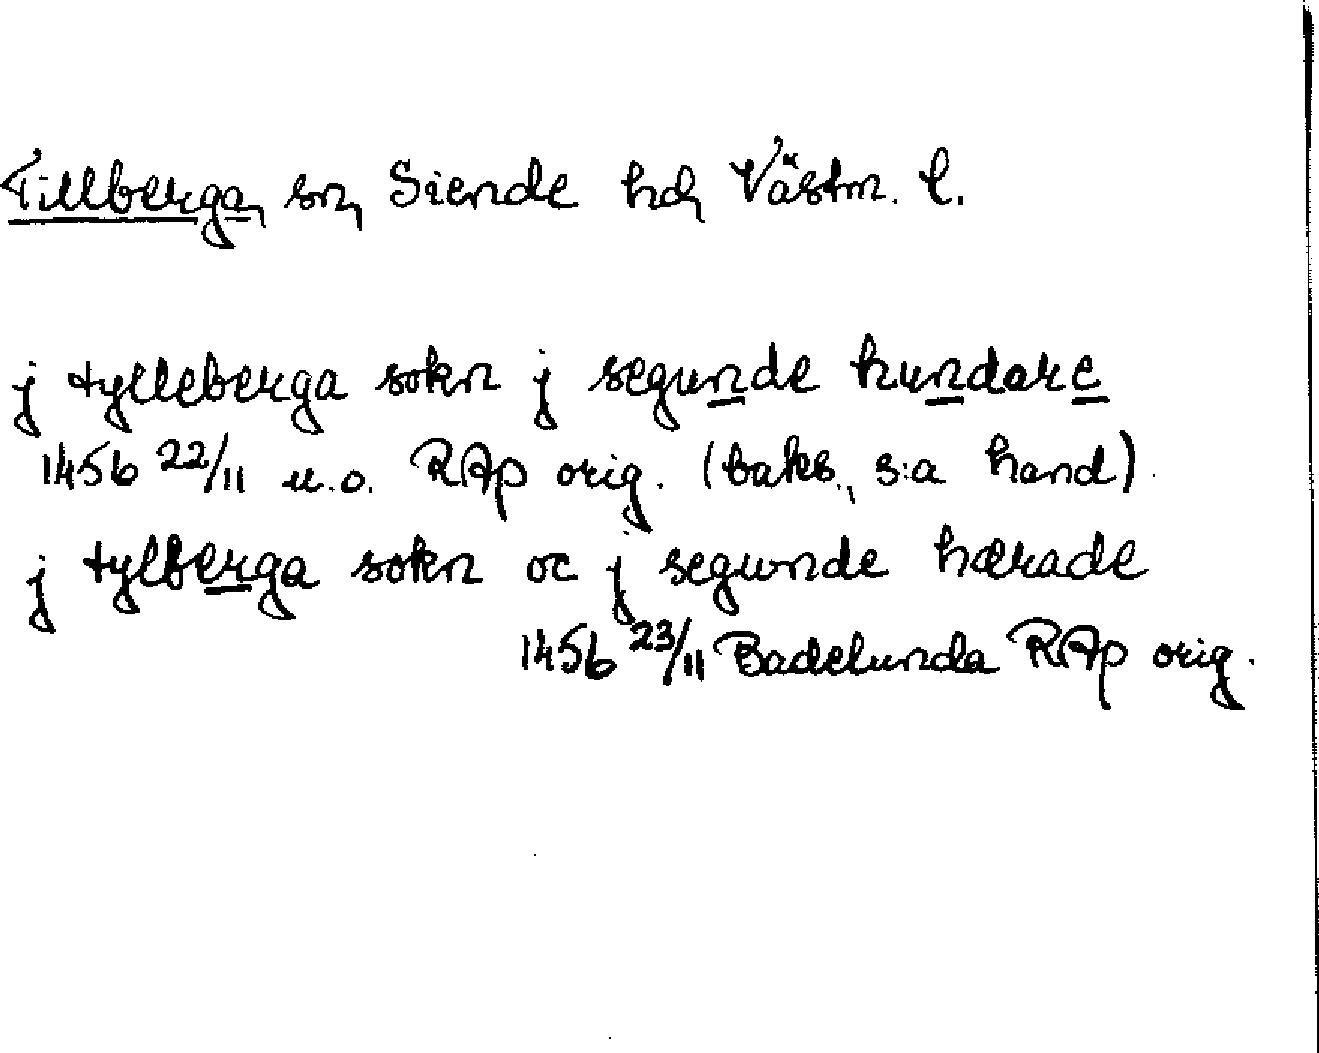 Tillberga, sn, Siende hd, Västm. l.
j tylleberga sokn j segunde hundare
1456 22/11 u.o. RAp orig. (baks., s:a hand).
j tylberga sokn oc j segunde hærade
1456 23/11 Badelunda RAp orig.